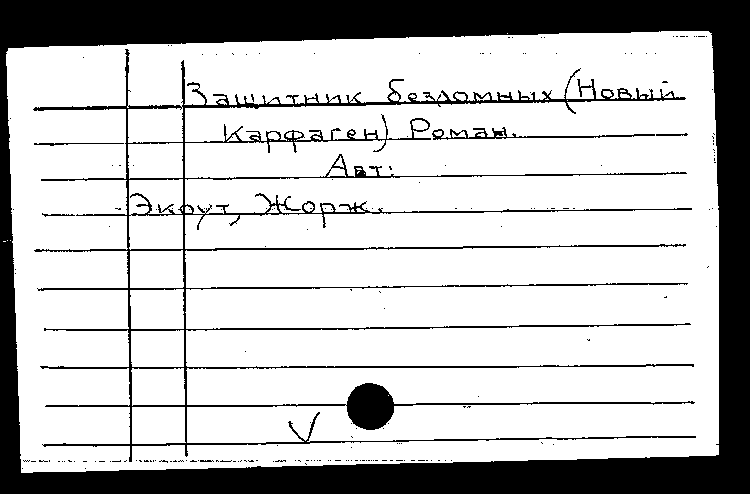 Защитник бездомных (Новый
Карфаген) Роман.
Авт:
Экоут, Жорж.